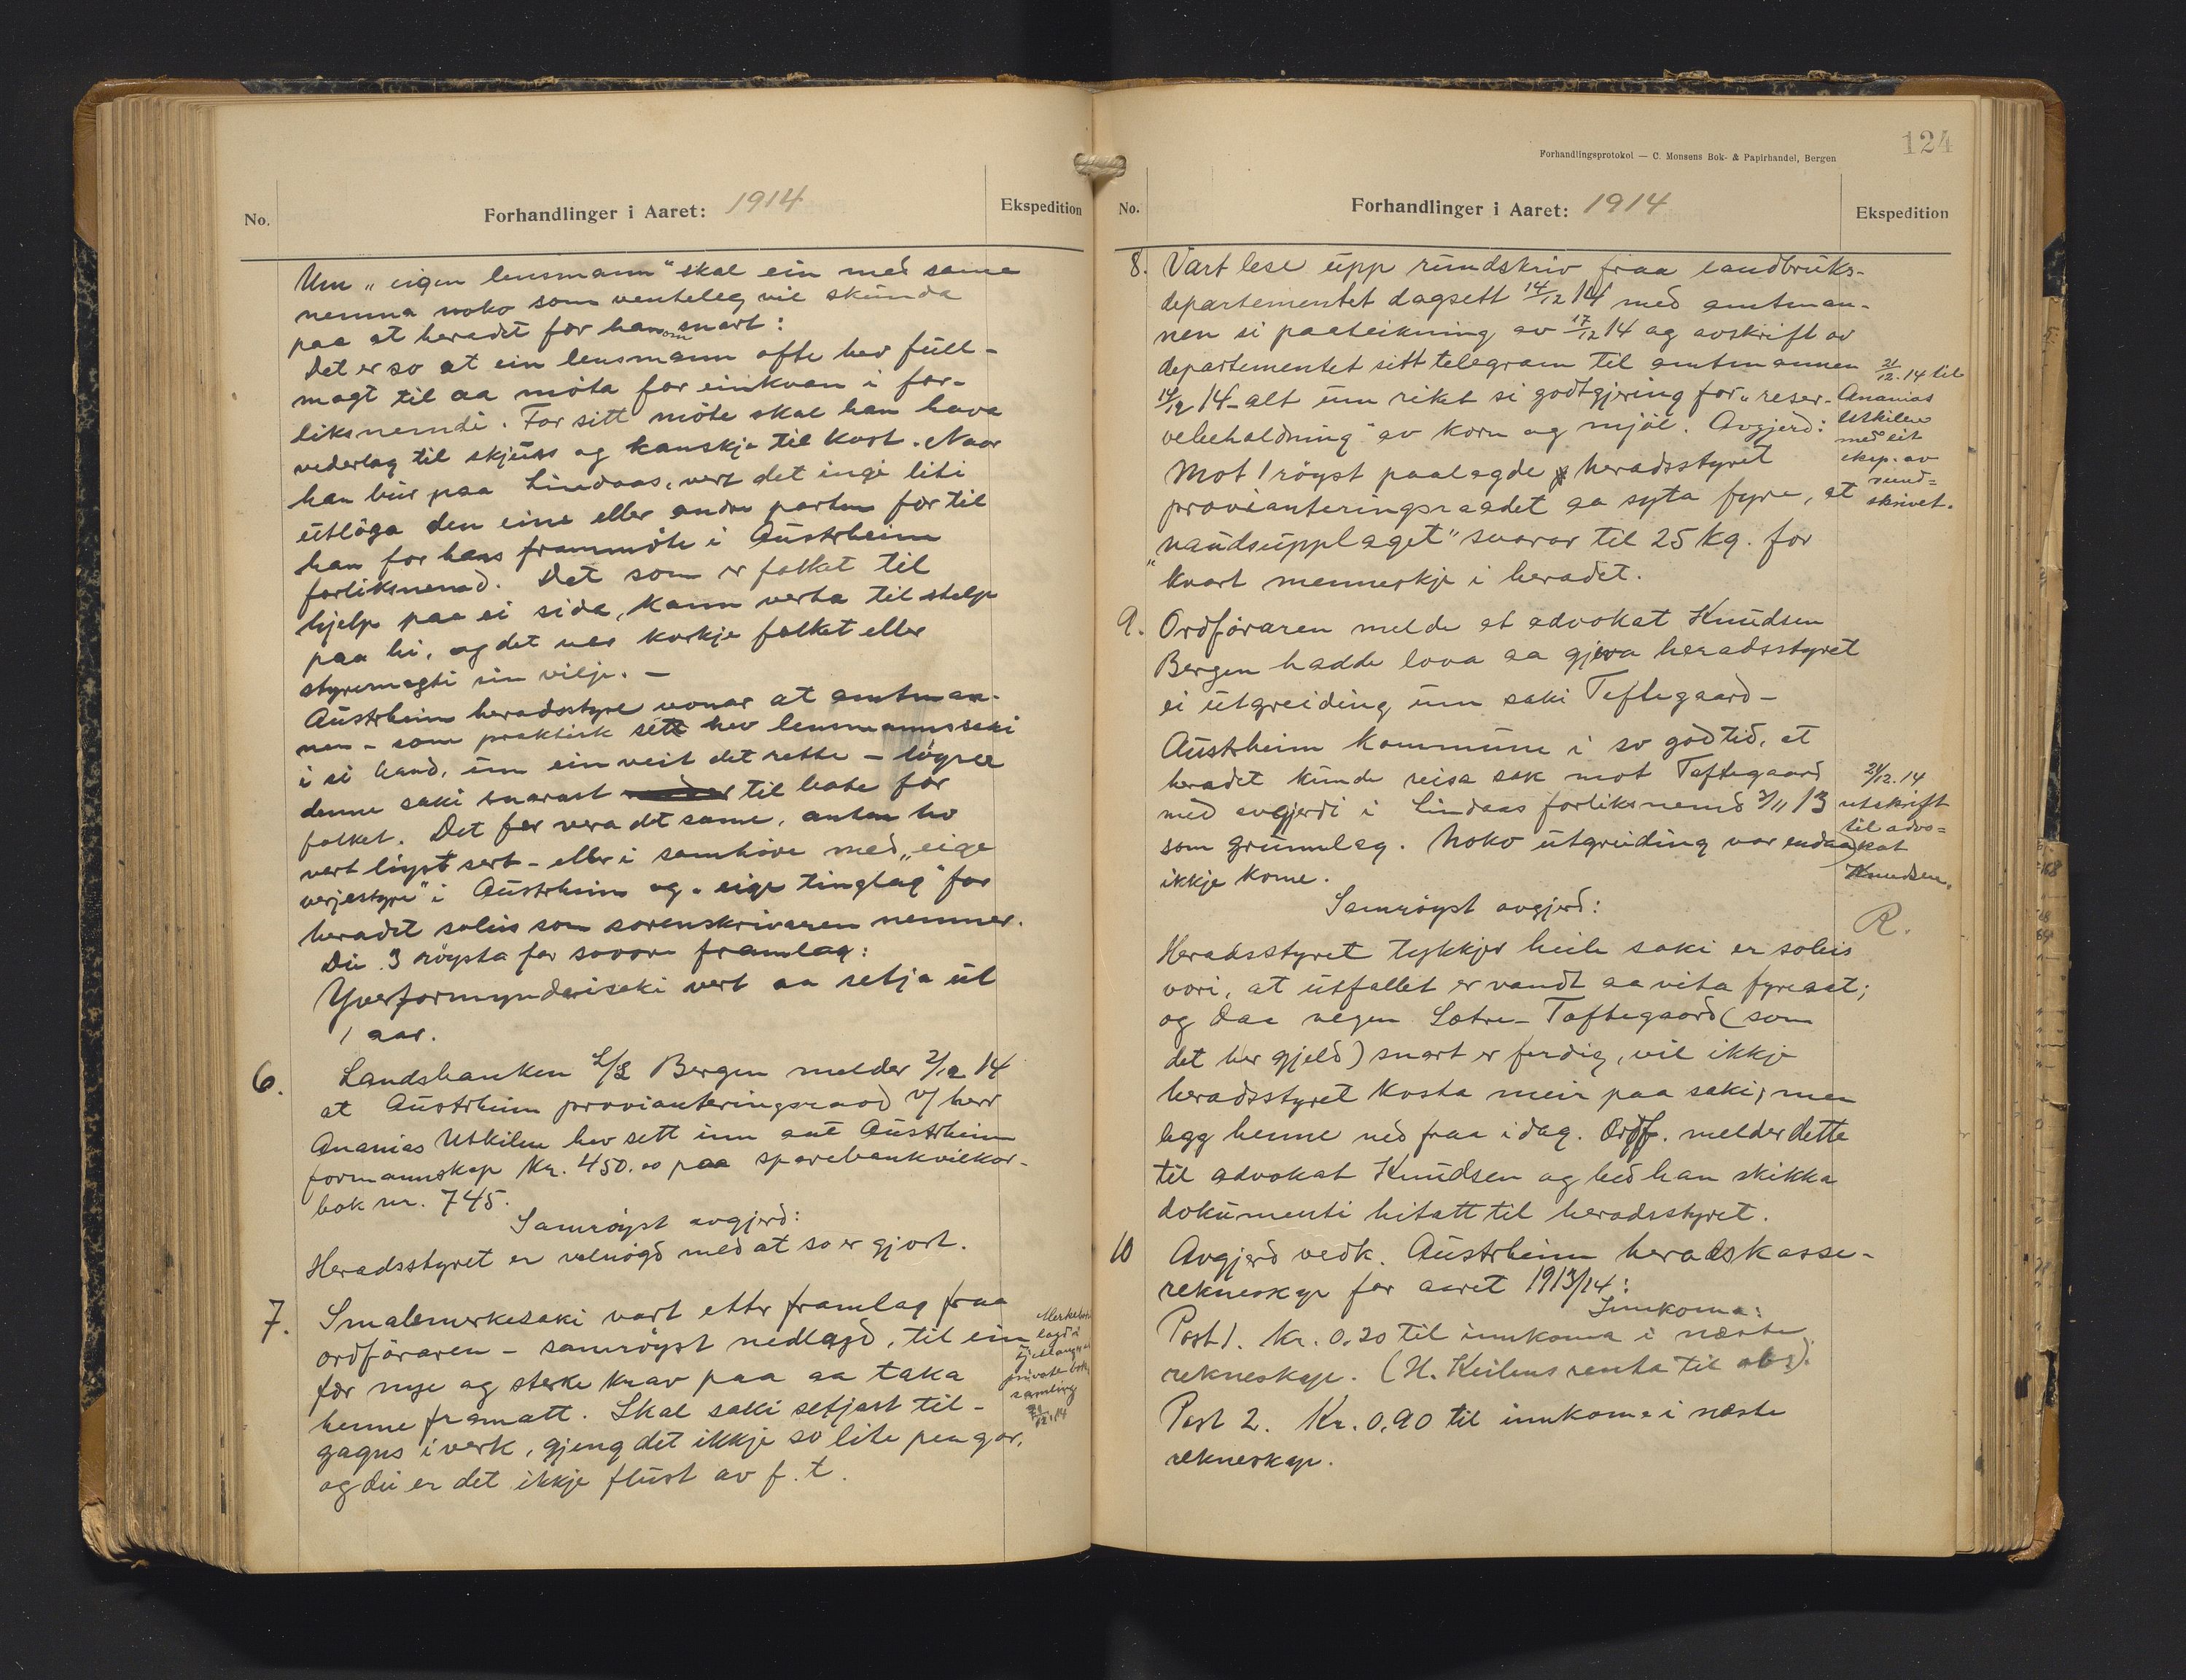 No.
Forhandlinger i Aaret: 1914
Ekspedition
Um „eigen lensmann" skal ein med same
nemna noko som venteleg vil skunda
paa at heradet fær han snart:
Det er so at ein lensmann ofte hev full-
magt til aa møta for einkvan i for-
liksnemdi. For sitt møte skal han hava
vederlag til skjuss og kanskje til kost. Naar
han bur paa Lindaas, vert det ingi liti
utløga den eine eller andre parten fær til
han for hans frammøte i Austrheim
forliksnemd. Det som er folket til
hjelp paa ei sida, kann verta til stelp
paa hi, og det var korkje folket eller
styremagti sin vilje. —
Austrheim heradsstyre vonar at amtman-
nen - som praktisk sett hev lensmannssaki
i si hand, um ein veit det rette - løyser
denne saki snarast til bate for
folket. Det fær vera det same, anten ho
vert løyst sert - eller i samhøve med „eige
verjestyre" i Austrheim og „eige tinglag" for
heradet soleis som sorenskrivaren nemner.
Dei 3 røysta for sovore framlag:
Yverformynderisaki vert aa setja ut
1 aar.
6. Landsbanken A/S Bergen melder 2/12 14
at Austrheim provianteringsraad v/ herr
Ananias Utkilen hev sett inn aat Austrheim
formannskap Kr. 450.00 paa sparebankvilkor-
bok nr. 745.
Samrøyst avgjerd:
Heradsstyret er velnøgd med at so er gjort.
7. Smalemerkesaki vart etter framlag fraa
ordføraren - samrøyst nedlagd, til ein
fær nye og sterke krav paa aa taka
henne framatt. Skal saki setjast til-
gagns i verk, gjeng det ikkje so lite pengar,
og dei er det ikkje flust av f. t.
lagd i
private bok-
samling
21/12.14
124
Forhandlingsprotokol — C. Monsens Bok- & Papirhandel, Bergen
No.
Forhandlinger i Aaret: 1914
Ekspedition
8. Vart lese upp rundskriv fraa landbruks-
departementet dagsett 14/12 14 med amtman-
nen si paateikning av 17/12 14 og avskrift av
departementet sitt telegram til amtmannen
14/12 14 - alt um riket si godtgjering for „reser-
vebehaldning" av korn og mjøl. Avgjerd:
Mot 1 røyst paalagde heradsstyret
provianteringsraadet aa syta fyre, at
„naudsupplaget" svarar til 25 kg. for
kvart menneskje i heradet.
21/12.14 til
Ananias
Utkilen
med eit
eksp. av
rund=
skrivet.
9. Ordføraren melde at advokat Knudsen
Bergen hadde lova aa gjeva heradsstyret
ei utgreiding um saki Toftegaard-
Austrheim kommune i so god tid, at
heradet kunde reisa sak mot Toftegaard
med avgjerdi i Lindaas forliksnemd 3/11 13
som grunnlag. Noko utgreiding var endaa
ikkje kome.
21/12.14
utskrift
til advo=
kat
Knudsen.
Samrøyst avgjerd:
R.
Heradsstyret tykkjer heile saki er soleis
vori, at utfallet er vandt aa vita fyreaat;
og daa vegen Sætre-Toftegaard (som
det her gjeld) snart er ferdig, vil ikkje
heradsstyret kosta meir paa saki, men
legg henne ned fraa idag. Ordf. melder dette
til advokat Knudsen og bed han skikka
dokumenti hitatt til heradsstyret.
10 Avgjerd vedk. Austrheim heradskasse-
rekneskap for aaret 1913/14:
Innkoma:
Post 1. Kr. 0,20 til innkoma i næste
rekneskap. (H. Keilens renta til obs).
Post 2. Kr. 0,90 til innkoma i næste
rekneskap.